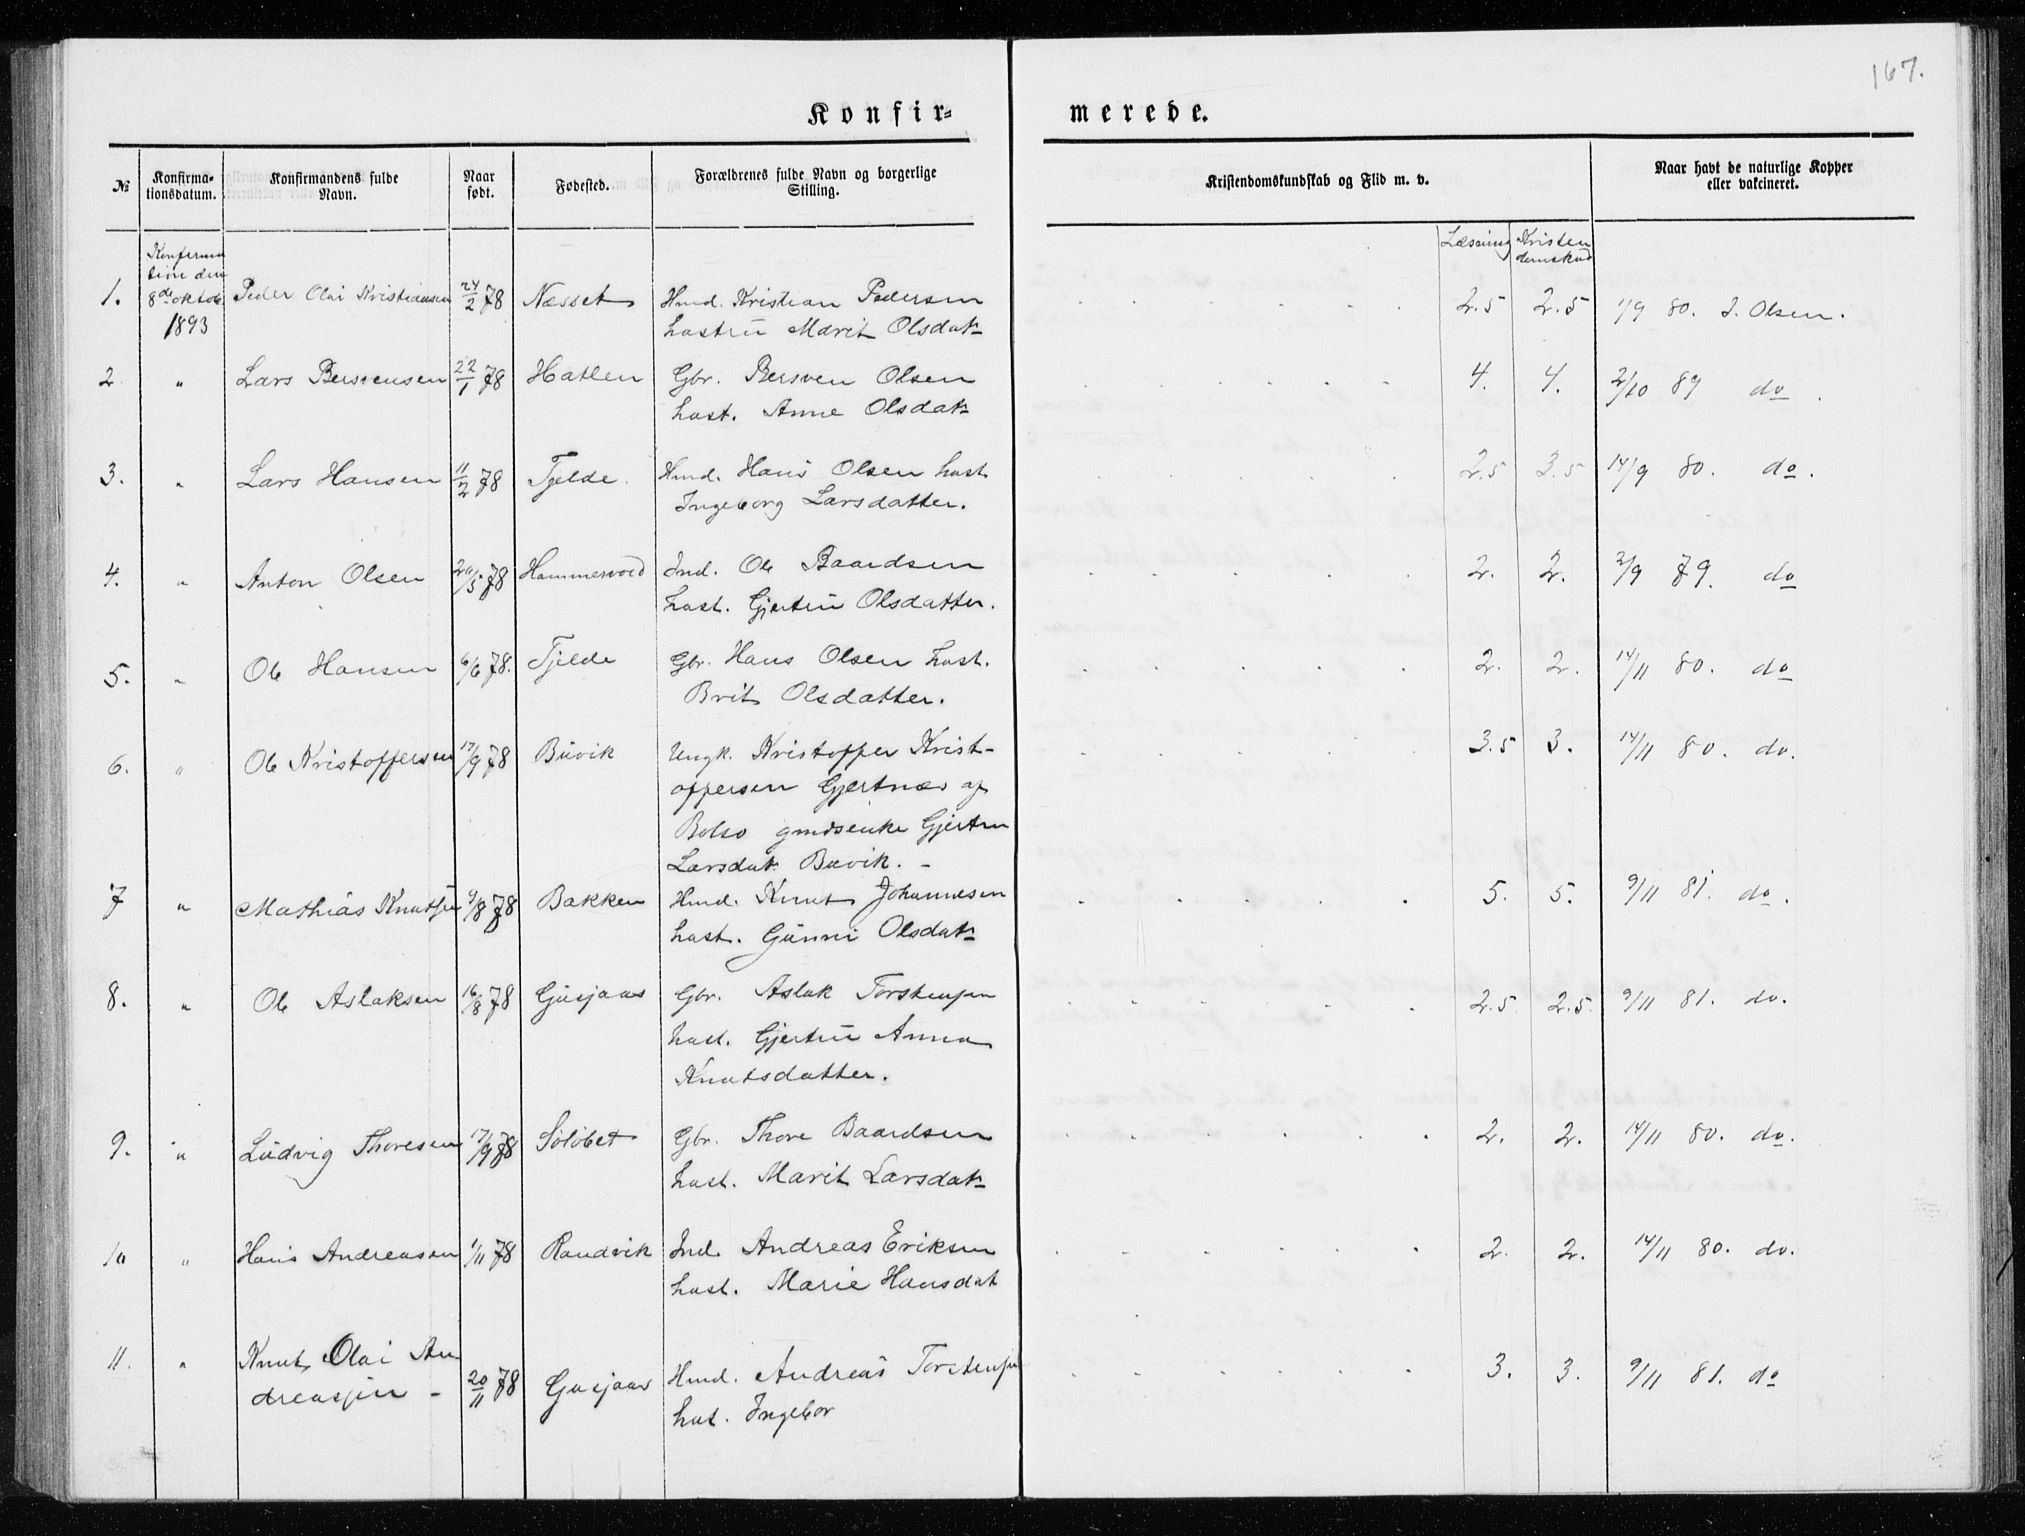 167.
Konfir- merede.
No Konfirma-tionsdatum. Konfirmandens fulde Navn. Naar født. Fødested. Forældrenes fulde Navn og borgerlige Stilling. Kristendomskundskab og Flid m. v. Naar havt de naturlige Kopper eller vakcineret.
Læsning Kristen
domskud
Konfirma
tion den
1. 8de oktob Peder Olai Kristiansen 24/2 78 Næsset Hmd. Kristian Pedersen 2.5 2.5 1/9 80. I. Olsen.
1893 hustru Marit Olsdat
2 " Lars Bersvensen 22/1 78 Hatlen Gbr. Bersven Olsen 4. 4. 2/10 89 do.
hust. Anne Olsdat
3. " Lars Hansen 11/2 78 Tjelde. Hmd. Hans Olsen hust 2.5 3.5 14/9 80. do.
Ingeborg Larsdatter.
4. " Anton Olsen 29/5 78 Hammervold Ind. Ole Baardsen 2. 2. 2/9 79. do
hust. Gjertru Olsdatter.
5. " Ole Hansen 6/6 78. Tjelde Gbr. Hans Olsen hust. 2. 2. 14/11 80. do
Brit Olsdatter.
6. " Ole Kristoffersen 17/9 78 Buvik Ungk. Kristoffer Krist- 3.5 3. 14/11 80. do.
offersen Gjertnæs af
Bolso gmdsenke Gjertru
Larsdat Buvik. -
7 " Mathias Knutsen 9/8 78 Bakken Hmd. Knut Johannesen 5. 5. 9/11 81. do.
hust. Gunni Olsdat
8. " Ole Aslaksen 16/8 78 Gusjaas Gbr. Aslak Torstensen 2.5 2.5 9/11 81. do.
hust. Gjertru Anna
Knutsdatter.
9. " Ludvig Thoresen 17/9 78 Solobet Gbr. Thore Baardsen 2. 2. 14/11 80. do.
hust. Marit Larsdat
10 " Hans Andreasen 1/11 78 Randvik Ind. Andreas Eriksen 2. 2. 14/11 80. do.
hust. Marie Hansdat
11. " Knut Olai An
dreassen - 20/11 78 Gusjaas Hmd. Andreas Torstensen 3. 3. 9/11 81. do
hust. Ingebor